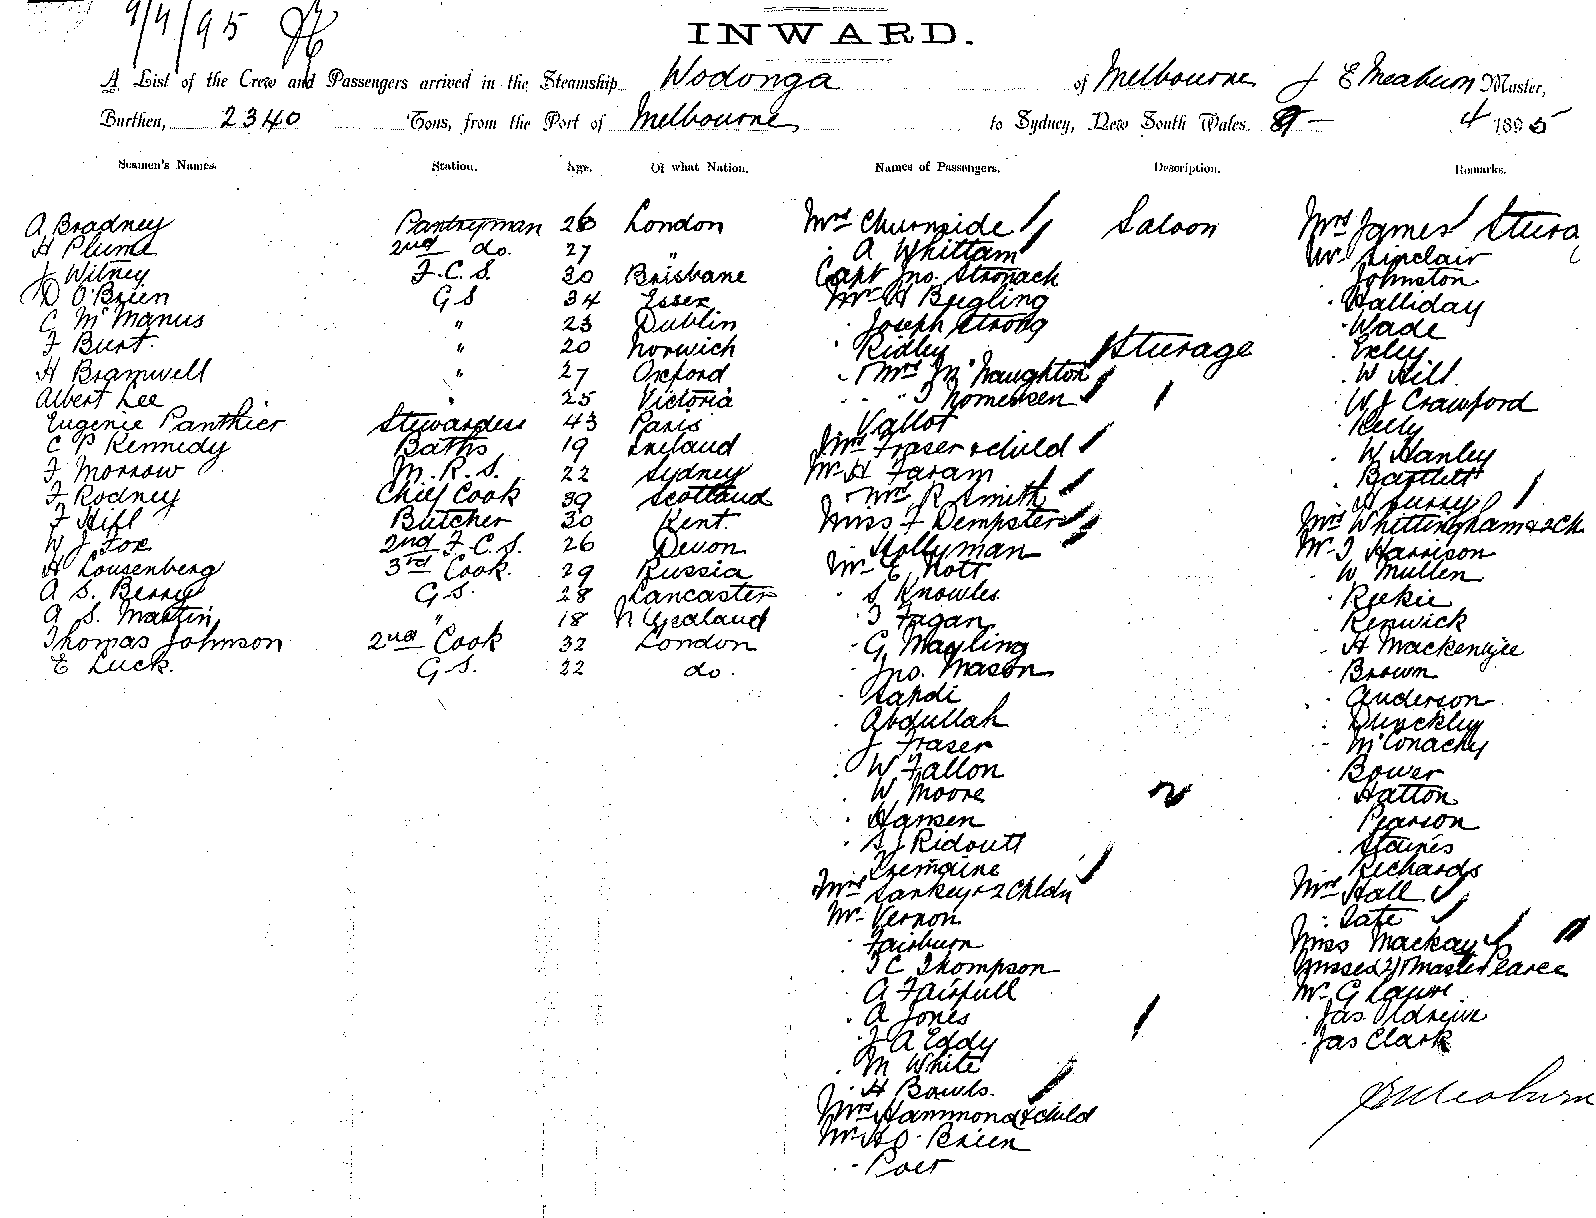 9/4/95
INWARD.
A List of the Crew and Passengers arrived in the Steamship Wodonga of Melbourne J E Meaburn Master,
Burthen, 2340 Tons, from the Port of Melbourne to Sydney, New South Wales. 9 - 4 1895
Seamen's Names. Station. Age. Of what Nation. Names of Passengers. Description. Remarks.
A Bradney Pantryman 26 London
H Plume 2nd do. 27 "
J Witney F.C.S. 30 Brisbane
D O'Brien G S 34 Essex
C McManus " 23 Dublin
F Burt " 20 Norwich
H Bramwell " 27 Oxford
Albert Lee " 25 Victoria
Eugenie Panthier Stewardess 43 Paris
C P Kennedy Baths 19 Ireland
F Morrow M.R.S. 22 Sydney
F Rodney Chief Cook 39 Scotland
F Hill Butcher 30 Kent
W J Fox 2nd F.C.S. 26 Devon
H Lousenberg 3rd Cook. 29 Russia
A S. Berry G S. 28 Lancaster
A S. Martin " 18 N Zealand
Thomas Johnson 2nd Cook 32 London
E Luck. G.S. 22 do.
Mrs Churnside Saloon
A Whittam
Capt Jno. Stronach
Mr H Beegling
Joseph Strong
Ridley Sturage
Mrs McNaughton
" J Nomensen
Vallot
Mrs Fraser & child
Mr H Faram
Mrs R Smith
Miss F Dempster
Hollyman
Mr E Nott
S Knowles
T Fagan
G Mayling
Jno. Mason
Sahdi
Abdullah
J Fraser
W Fallon
W Moore
Hansen
S J Ridoutt
Tremaine
Mrs Sankey & 2 Chldn
Mr Vernon
Fairburn
T C Thompson
A Fairfull
A Jones
J A Eddy
M White
H Bawls.
Mrs Hammond & child
Mr H O'Brien
Poer
Mrs James Stura
Mr Sinclair
Johnston
Halliday
Wade
Exley
W Hill
W J Crawford
Kelly
W Hanley
Bartlett
Mrs Whittingham & 2 Ch
Mr T Harrison
W Mullen
Reekie
Renwick
H Mackenzie
Brown
Anderson
Dunckley
McConachy
Bower
Hatton
Pearson
Staines
Richards
Mrs Hall
Tate
Miss Mackay
Misses (2) & Master Pearce
Mr G
Jas
Jas Clark
J E Meaburn